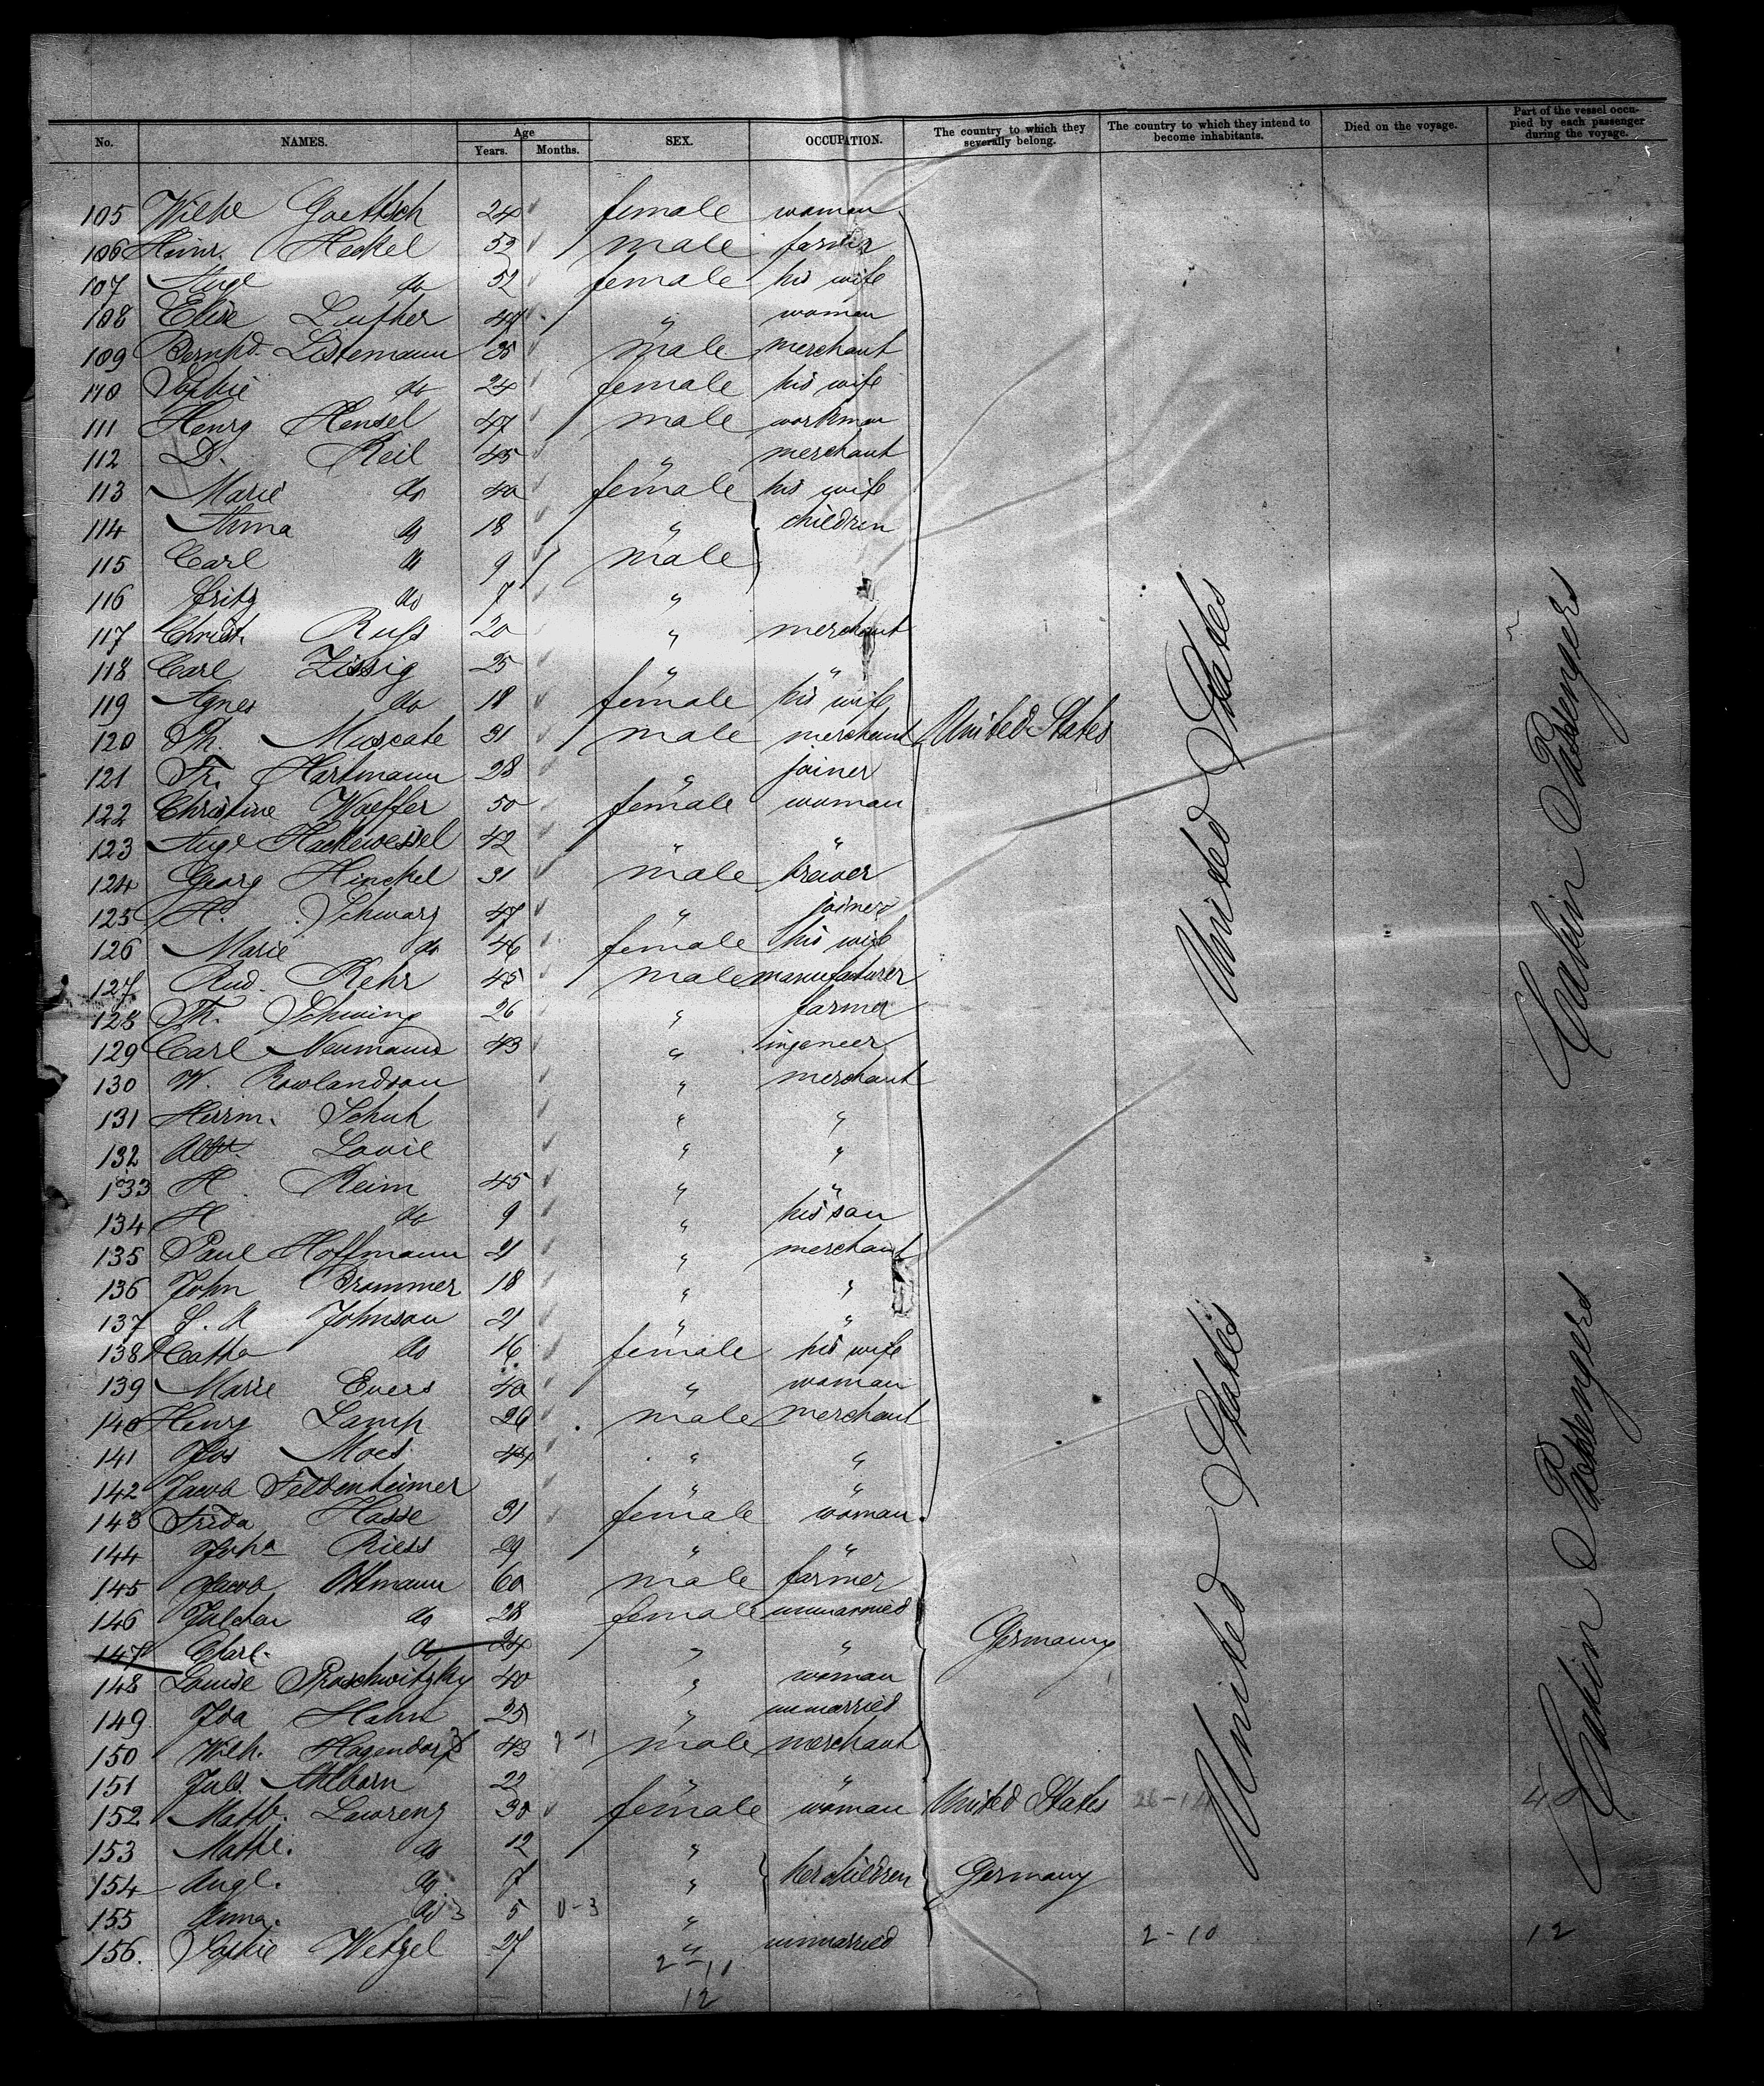 No. NAMES. Age Years. Months. SEX. OCCUPATION. The country to which they severally belong. The country to which they intend to become inhabitants. Died on the voyage. Part of the vessel occupied by each passenger during the voyage.
105 Wilhe Goettsch 24 female woman
106 Heinr. Heckel 53 male farmer
107 Auge do 52 female his wife
108 Elise Luther 44 " woman
109 Bernhd. Listemann 35 male merchant
110 Sophie do 24 female his wife
111 Henry Hensel 47 male workman
112 D. Keil 45 " merchant
113 Marie do 40 female his wife
114 Anna do 18 " children
115 Carl do 9 male
116 Fritz do 7 "
117 Christ. Russ 20 " merchant
118 Carl Zissig 25 " "
119 Agnes do 18 female his wife
120 Th. Muscate 31 male merchant United States
121 Fr. Hartmann 28 " joiner
122 Christine Woeffer 50 female woman
123 Auge Hackewessel 42 " "
124 Georg Hinckel 31 male brewer
125 H. Schwarz 47 " joiner
126 Marie do 46 female his wife
127 Rud. Kehr 45 male manufacturer
128 Th. Schwing 26 " farmer
129 Carl Neumann 43 " ingeneer
130 W. Rowlandson " merchant
131 Herrm. Schuh " "
132 Albt. Louie " "
133 H. Reim 45 " "
134 H do 9 " his son
135 Paul Hoffmann 21 " merchant
136 John Brammer 18 " "
137 S. A Johnson 21 " "
138 Catha do 16 female his wife
139 Marie Evers 40 " woman
140 Henry Lamp 26 male merchant
141 Jos Moes 44 " "
142 Jacob Feldenheimer " "
143 Frida Hasse 31 female woman
144 Joha Riess 29 " "
145 Jacob Ottmann 60 male farmer
146 Julchen do 28 female unmarried
147 Charl. do 24 " " Germany
148 Louise Proschwitzky 40 " woman
149 Ida Hahn 25 " unmarried
150 Wilh. Hagendorf 43 male merchant
151 Juls. Ahlborn 22 " "
152 Math. Lawrenz 30 female woman United States 26-14
153 Mathe. do 12 "
154 Augl. do 7 " her children Germany
155 Anna. do 3 5 0-3 "
156. Sophie Wetzel 27 " unmarried 2-10 12
2-10
12
United States
United States
Cabin Passengers
Cabin Passengers